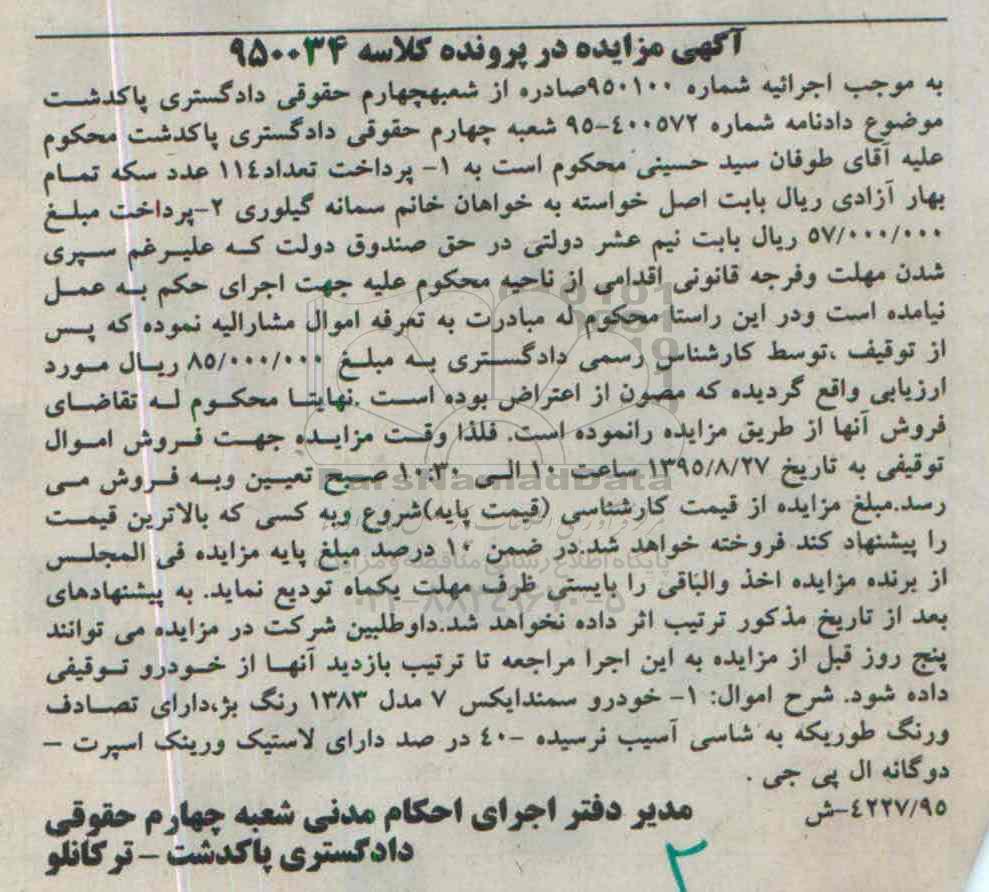 آگهی مزایده در پرونده کلاسه ۹۵۰۰۳۴
به موجب اجرائیه شماره ۹۵۰۱۰۰صادره از شعبهچهارم حقوقی دادگستری پاکدشت
موضوع دادنامه شماره ۴۰۰۵۷۲-۹۵ شعبه چهارم حقوقی دادگستری پاکدشت محکوم
علیه آقای طوفان سید حسینی محکوم است به ۱- پرداخت تعداد۱۱۴ عدد سکه تمام
بهار آزادی ریال بابت اصل خواسته به خواهان خانم سمانه گیلوری ۲-پرداخت مبلغ
۵۷/۰۰۰/۰۰۰ ریال بابت نیم عشر دولتی در حق صندوق دولت که علیرغم سپری
شدن مهلت وفرجه قانونی اقدامی از ناحیه محکوم علیه جهت اجرای حکم به عمل
نیامده است ودر این راستا محکوم له مبادرت به تعرفه اموال مشارالیه نموده که پس
از توقیف ،توسط کارشناس رسمی دادگستری به مبلغ ۸۵/۰۰۰/۰۰۰ ریال مورد
ارزیابی واقع گردیده که مصون از اعتراض بوده است .نهایتا محکوم له تقاضای
فروش آنها از طریق مزایده رانموده است. فلذا وقت مزایده جهت فروش اموال
توقیفی به تاریخ ۱۳۹۵/۸/۲۷ ساعت ۱۰ الی ۱۰:۳۰ صبح تعیین وبه فروش می
رسد.مبلغ مزایده از قیمت کارشناسی (قیمت پایه)شروع وبه کسی که بالاترین قیمت
را پیشنهاد کند فروخته خواهد شد.در ضمن ۱۰ درصد مبلغ پایه مزایده فی المجلس
از برنده مزایده اخذ والباقی را بایستی ظرف مهلت یکماه تودیع نماید. به پیشنهادهای
بعد از تاریخ مذکور ترتیب اثر داده نخواهد شد.داوطلبین شرکت در مزایده می توانند
پنج روز قبل از مزایده به این اجرا مراجعه تا ترتیب بازدید آنها از خودرو توقیفی
داده شود. شرح اموال: ۱- خودرو سمندایکس ۷ مدل ۱۳۸۳ رنگ بژ،دارای تصادف
ورنگ طوریکه به شاسی آسیب نرسیده -۴۰ در صد دارای لاستیک ورینک اسپرت -
دوگانه ال پی جی .
۴۲۲۷/۹۵-ش
مدیر دفتر اجرای احکام مدنی شعبه چهارم حقوقی
دادگستری پاکدشت - ترکانلو
۲
ParsNamadData
پایگاه اطلاع رسانی مناقصه و مزایده